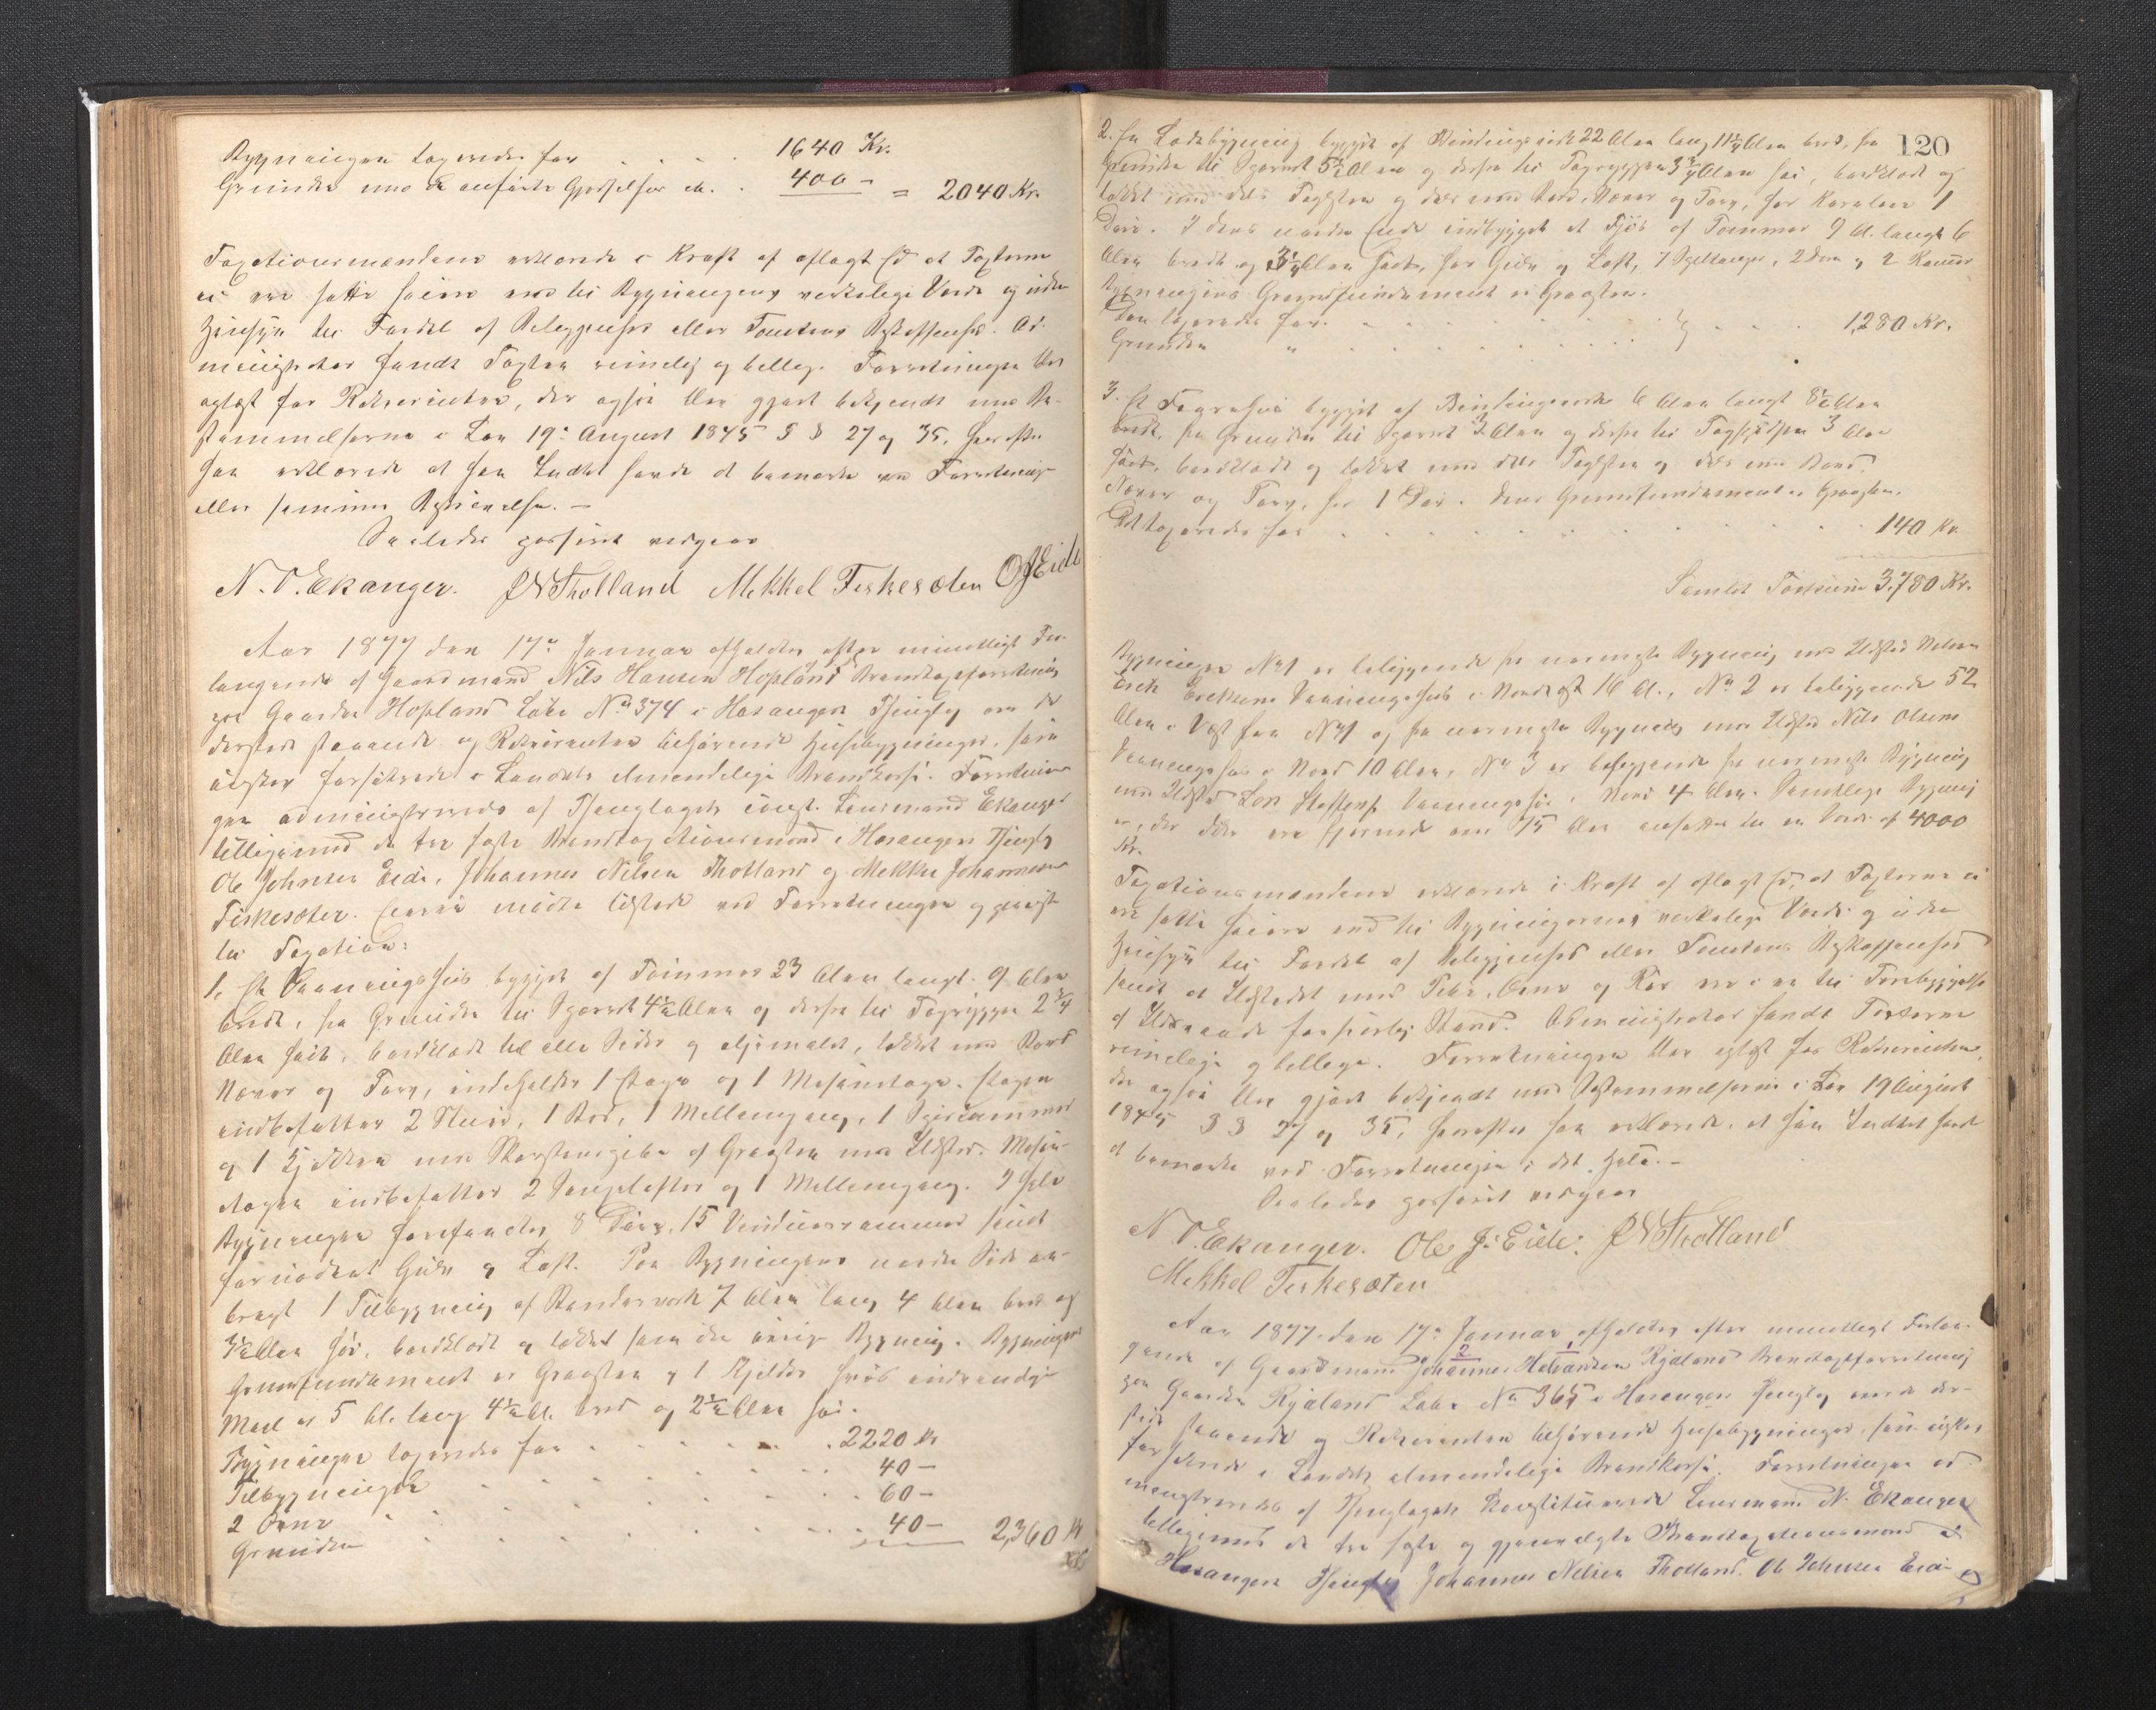 Bygningen taxeredes for . . . . 1640 Kr.
Grunden med de anførte Gjenstande . 400 – = 2040 Kr.
Taxationsmændene erklærede i Kraft af aflagt Ed at Taxterne
ei ere satte høiere end til Bygningens virkelige Værdi og uden
Hensyn til Fordel af Beliggenhed eller Tomtens Beskaffenhed. Ad-
ministrator fandt Taxten rimelig og billig. Forretningen blev
oplæst for Rekvirenten, der ogsaa blev gjort bekjendt med Be-
stemmelserne i Lov 19de August 1845 §§ 27 og 35, hvorefter
han erklærede at han Intet havde at bemærke ved Forretningen
eller sammes Bestyrelse. –
Saaledes passeret vidner
N. O. Ekanger. J N Tholland Mekkel Fiskesæten O J Eide
Aar 1877 den 17de Januar afholdtes efter mundtligt For-
langende af Gaardmand Nils Hansen Hopland Brandtaxtforretning
paa Gaarden Hopland Løbe No 374 i Hosangers Thinglag over de
dersteds staaende og Rekvirenten tilhørende Husebygninger, som
ønskes forsikrede i Landets almindelige Brandkasse. Forretnin-
gen administreredes af Thinglagets const. Lensmand Ekanger
tilligemed de tre faste Brandtaxationsmænd i Hosangers Thinglag
Ole Johnsen Eide, Johannes Nilsen Tholland og Mekkel Johannesen
Fiskesæter. Eieren mødte tilstede ved Forretningen
til Taxation:
1. Et Vaaningshus bygget af Tømmer 23 Alen langt 9 Alen
bredt, fra Grunden til Sparret 4½ Alen og derfra til Tagryggen 2 3/4
Alen høit, bordklædt til alle Sider og oljemalet, tækket med Bord
Næver og Torv, indeholder 1 Etage og 1 Mesanetage. Etagen
indbefatter 2 Stuer, 1 Bod, 1 Mellemgang, 1 Spisekammer
og 1 Kjøkken med Skorstenspibe af Graasten med Ildsted. Mesan-
etagen indbefatter 2 Sengelofter og 1 Mellemgang. I hele
Bygningen forefandtes 8 Døre, 15 Vinduesrammer samt
fornødent Gulv og Loft. Paa Bygningens nordre Side an-
bragt 1 Tilbygning af Standerverk 7 Alen lang 4 Alen bred og
3½ Alen høi, bordklædt og tækket som den øvrige Bygning. Bygningens
Grundfundament er Graasten og 1 Kjelder indvendig
Maal er 5 Al. lang 4½ Al. bred og 2½ Alen høi.
Bygningen taxeredes for . . . . . 2220 Kr
Tilbygningen . . . . . 40 –
2 Ovne . . . . . 60 –
Grunden . . . . . 40 – 2,360 Kr
120
2. En Ladebygning bygget af Bindingsverk 22 Alen lang 11½ Alen bred, fra
Grunden til Sparret 5½ Alen og derfra til Tagryggen 3 3/4 Alen høi, bordklædt og
tækket med dels Tagsten og dels med Bord, Næver og Torv, har 1
Døre. I dens nordre Ende indbygget et Fjøs af Tømmer 9 Al. langt 6
Alen bredt og 3½ Alen høit, har Gulv og Loft, 2 Døre og 2 Rammer
Bygningens Grundfundament er Graasten.
Den taxeredes for . . . . .
Grunden " . . . . . 1,280 Kr.
3. Et bygget af Bindingsverk 6 Alen langt 8½ Alen
bredt, fra Grunden til Sparret 3 Alen og derfra til Tagryggen 3 Alen
høit, bordklædt og tækket med dels Tagsten og dels med Bord,
Næver og Torv, har 1 Dør. Dens Grundfundament er Graasten.
Det taxeredes for . . . . . 140 Kr.
Samlet Taxtsum 3,780 Kr.
Bygningen No 1 er beliggende fra nærmeste Bygning med Ildsted Naboen
Erik Eriksens Vaaningshus i Nordvest 16 Al., No 2 er beliggende 52
Alen i Vest fra No 1 og fra nærmeste Bygning med Ildsted Nils Olsens
Vaaningshus i Nord 10 Alen, No 3 er beliggende fra nærmeste Bygning
med Ildsted Lars Steffens. Vaaningshus i Nord 4 Alen. Samtlige Bygning
er, der ikke ere fjernede over 75 Alen ansættes til en Værdi af 4000
Kr.
Taxationsmændene erklærede i Kraft af aflagt Ed, at Taxterne ei
ere satte høiere end til Bygningernes virkelige Værdi og uden
Hensyn til Fordel af Beliggenhed eller Tomtens Beskaffenhed
samt at Ildstedet med Pibe, Ovne og Rør ere i en til Forebyggelse
af Ildsvaade forsvarlig Stand. Administrator fandt Taxterne
rimelige og billige. Forretningen blev oplæst for Rekvirenten,
der ogsaa blev gjort bekjendt med Bestemmelserne i Lov 19 August
1845 §§ 27 og 35, hvorefter han erklærede, at han Intet havde
at bemærke ved Forretningen i det Hele. –
Saaledes passeret vidner
N. O. Ekanger. Ole J. Eide. J N Tholland
Mekkel Fiskesæten
Aar 1877 den 17de Januar afholdtes efter mundtligt Forlan-
gende af Gaardmand Johannes Halvorsen Rydland Brandtaxtforretning
paa Gaarden Rydland Løbe No 365 i Hosangers Thinglag over de der-
steds staaende og Rekvirenten tilhørende Husebygninger, som ønskes
forsikrede i Landets almindelige Brandkasse. Forretningen ad-
ministreredes af Thinglagets Konstituerede Lensmand N. Ekanger
tilligemed de tre faste og opnævnte Brandtaxationsmænd i
Hosangers Thinglag Johannes Nilsen Tholland. Ole Johnsen Eide og